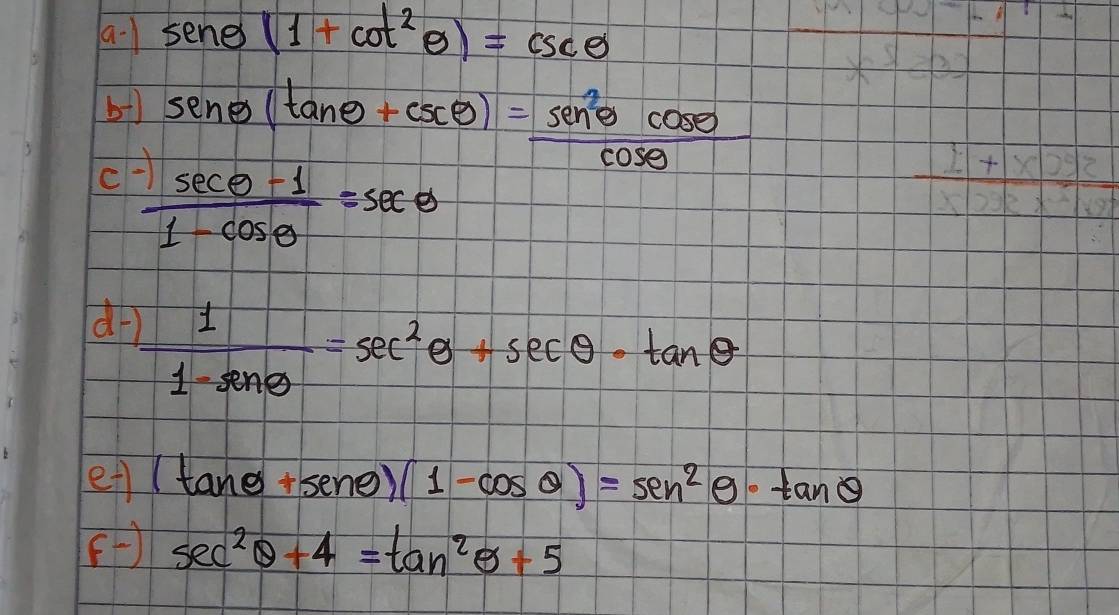 a-) senθ (1 + cot²θ) = cscθ
b-) senθ (tanθ + cscθ) = sen²θ cosθ / cosθ
c-) secθ - 1 / 1 - cosθ = secθ
d-) 1 / 1 - senθ = sec²θ + secθ · tanθ
e-) (tanθ + senθ)(1 - cosθ) = sen²θ · tanθ
f-) sec²θ + 4 = tan²θ + 5